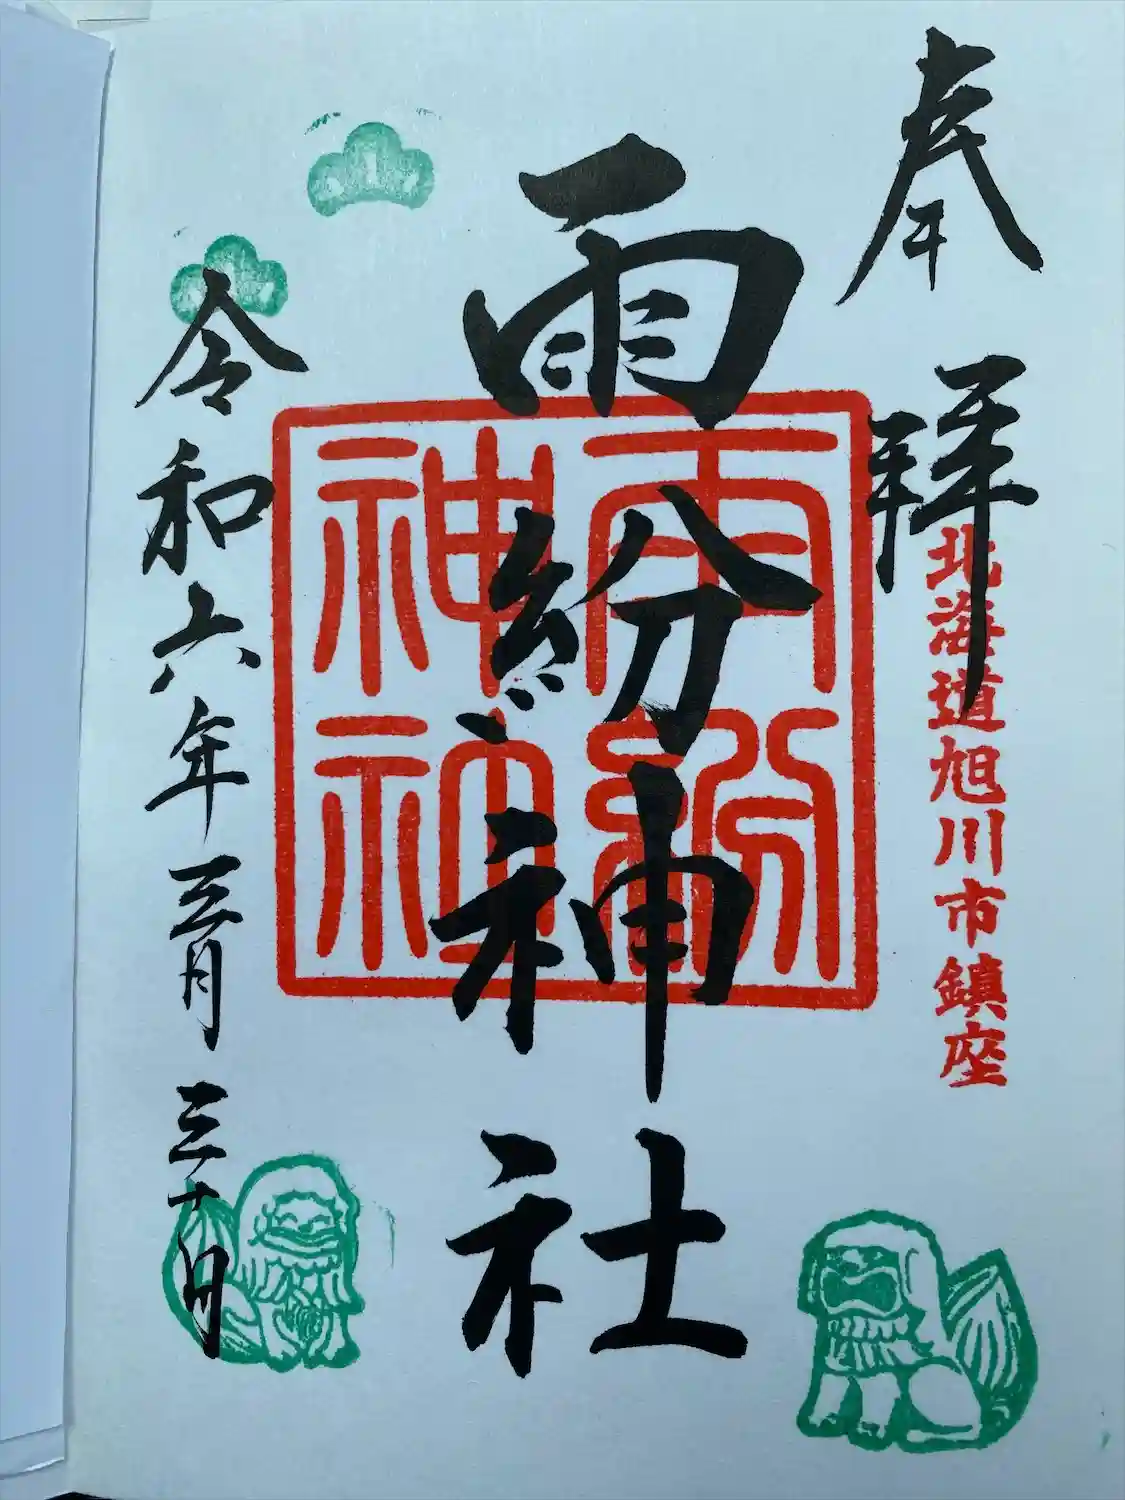 奉拝
北海道旭川市鎮座
雨紛神社
雨紛
神社
令和六年三月三十日